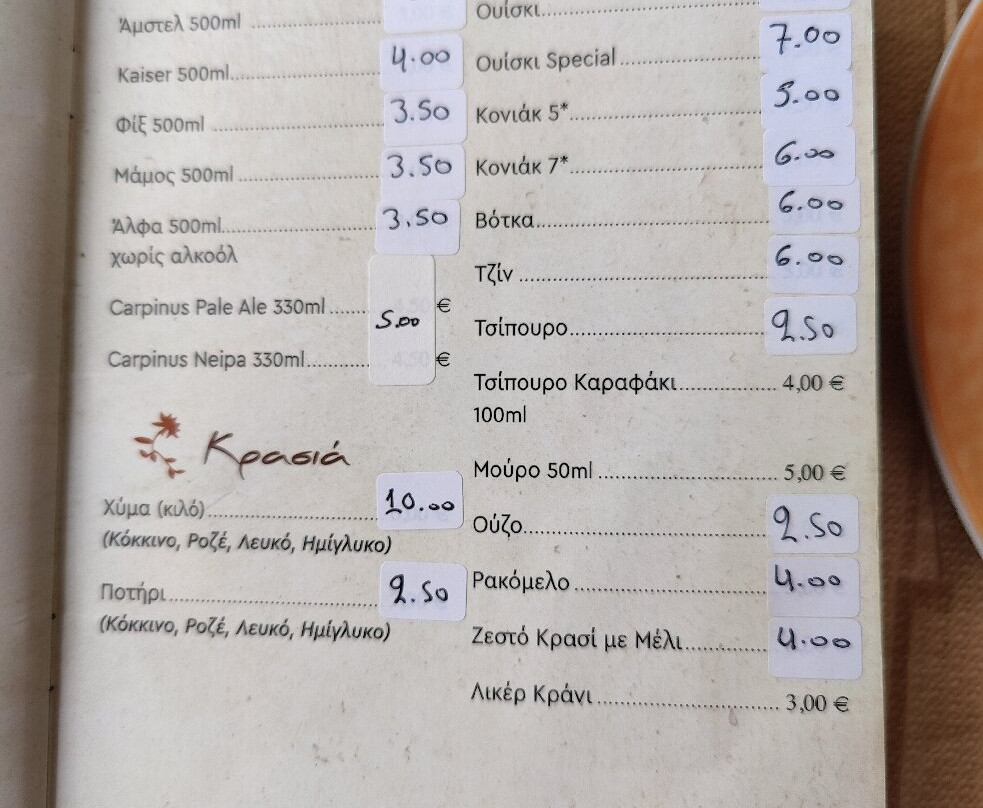 Άμστελ 500ml
Kaiser 500ml 4.00
Φίξ 500ml 3.50
Μάμος 500ml 3.50
Άλφα 500ml 3.50
χωρίς αλκοόλ
Carpinus Pale Ale 330ml €
5.00
Carpinus Neipa 330ml €
Κρασιά
Χύμα (κιλό) 10.00
(Κόκκινο, Ροζέ, Λευκό, Ημίγλυκο)
Ποτήρι 2.50
(Κόκκινο, Ροζέ, Λευκό, Ημίγλυκο)
Ουίσκι
Ουίσκι Special 7.00
Κονιάκ 5* 5.00
Κονιάκ 7* 6.00
Βότκα 6.00
Τζίν 6.00
Τσίπουρο 2.50
Τσίπουρο Καραφάκι 4,00 €
100ml
Μούρο 50ml 5,00 €
Ούζο 2.50
Ρακόμελο 4.00
Ζεστό Κρασί με Μέλι 4.00
Λικέρ Κράνι 3,00 €